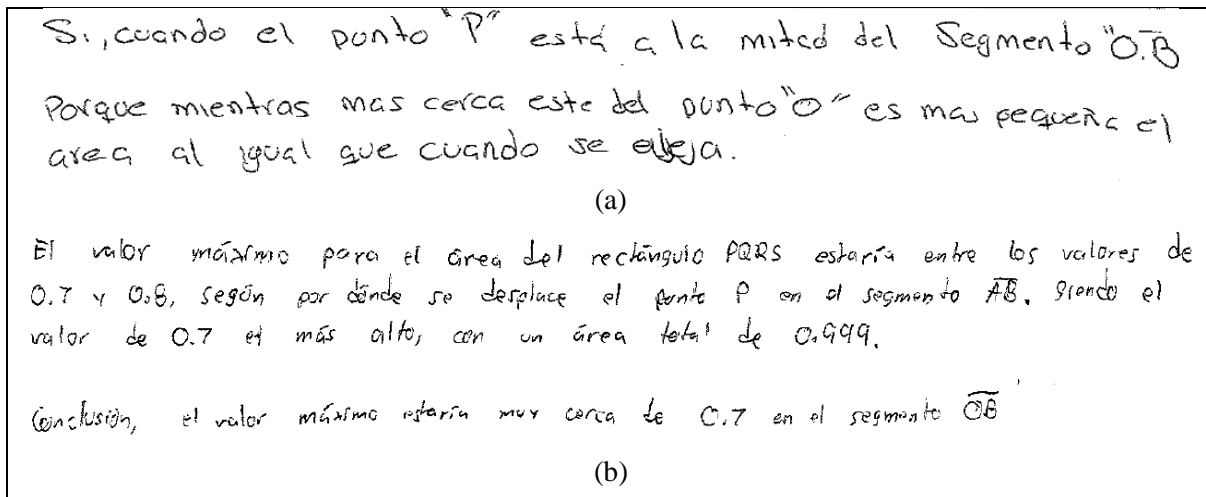 Si, cuando el punto "P" está a la mitad del Segmento "O.B
Porque mientras mas cerca este del punto "O" es mas pequeña el
area al igual que cuando se aleja.
(a)
El valor máximo para el área del rectángulo PQRS estaría entre los valores de
0.7 y 0.8, según por dónde se desplace el punto P en el segmento AB. Siendo el
valor de 0.7 el más alto, con un área total de 0.999.
Conclusión, el valor máximo estaría muy cerca de 0.7 en el segmento OB
(b)